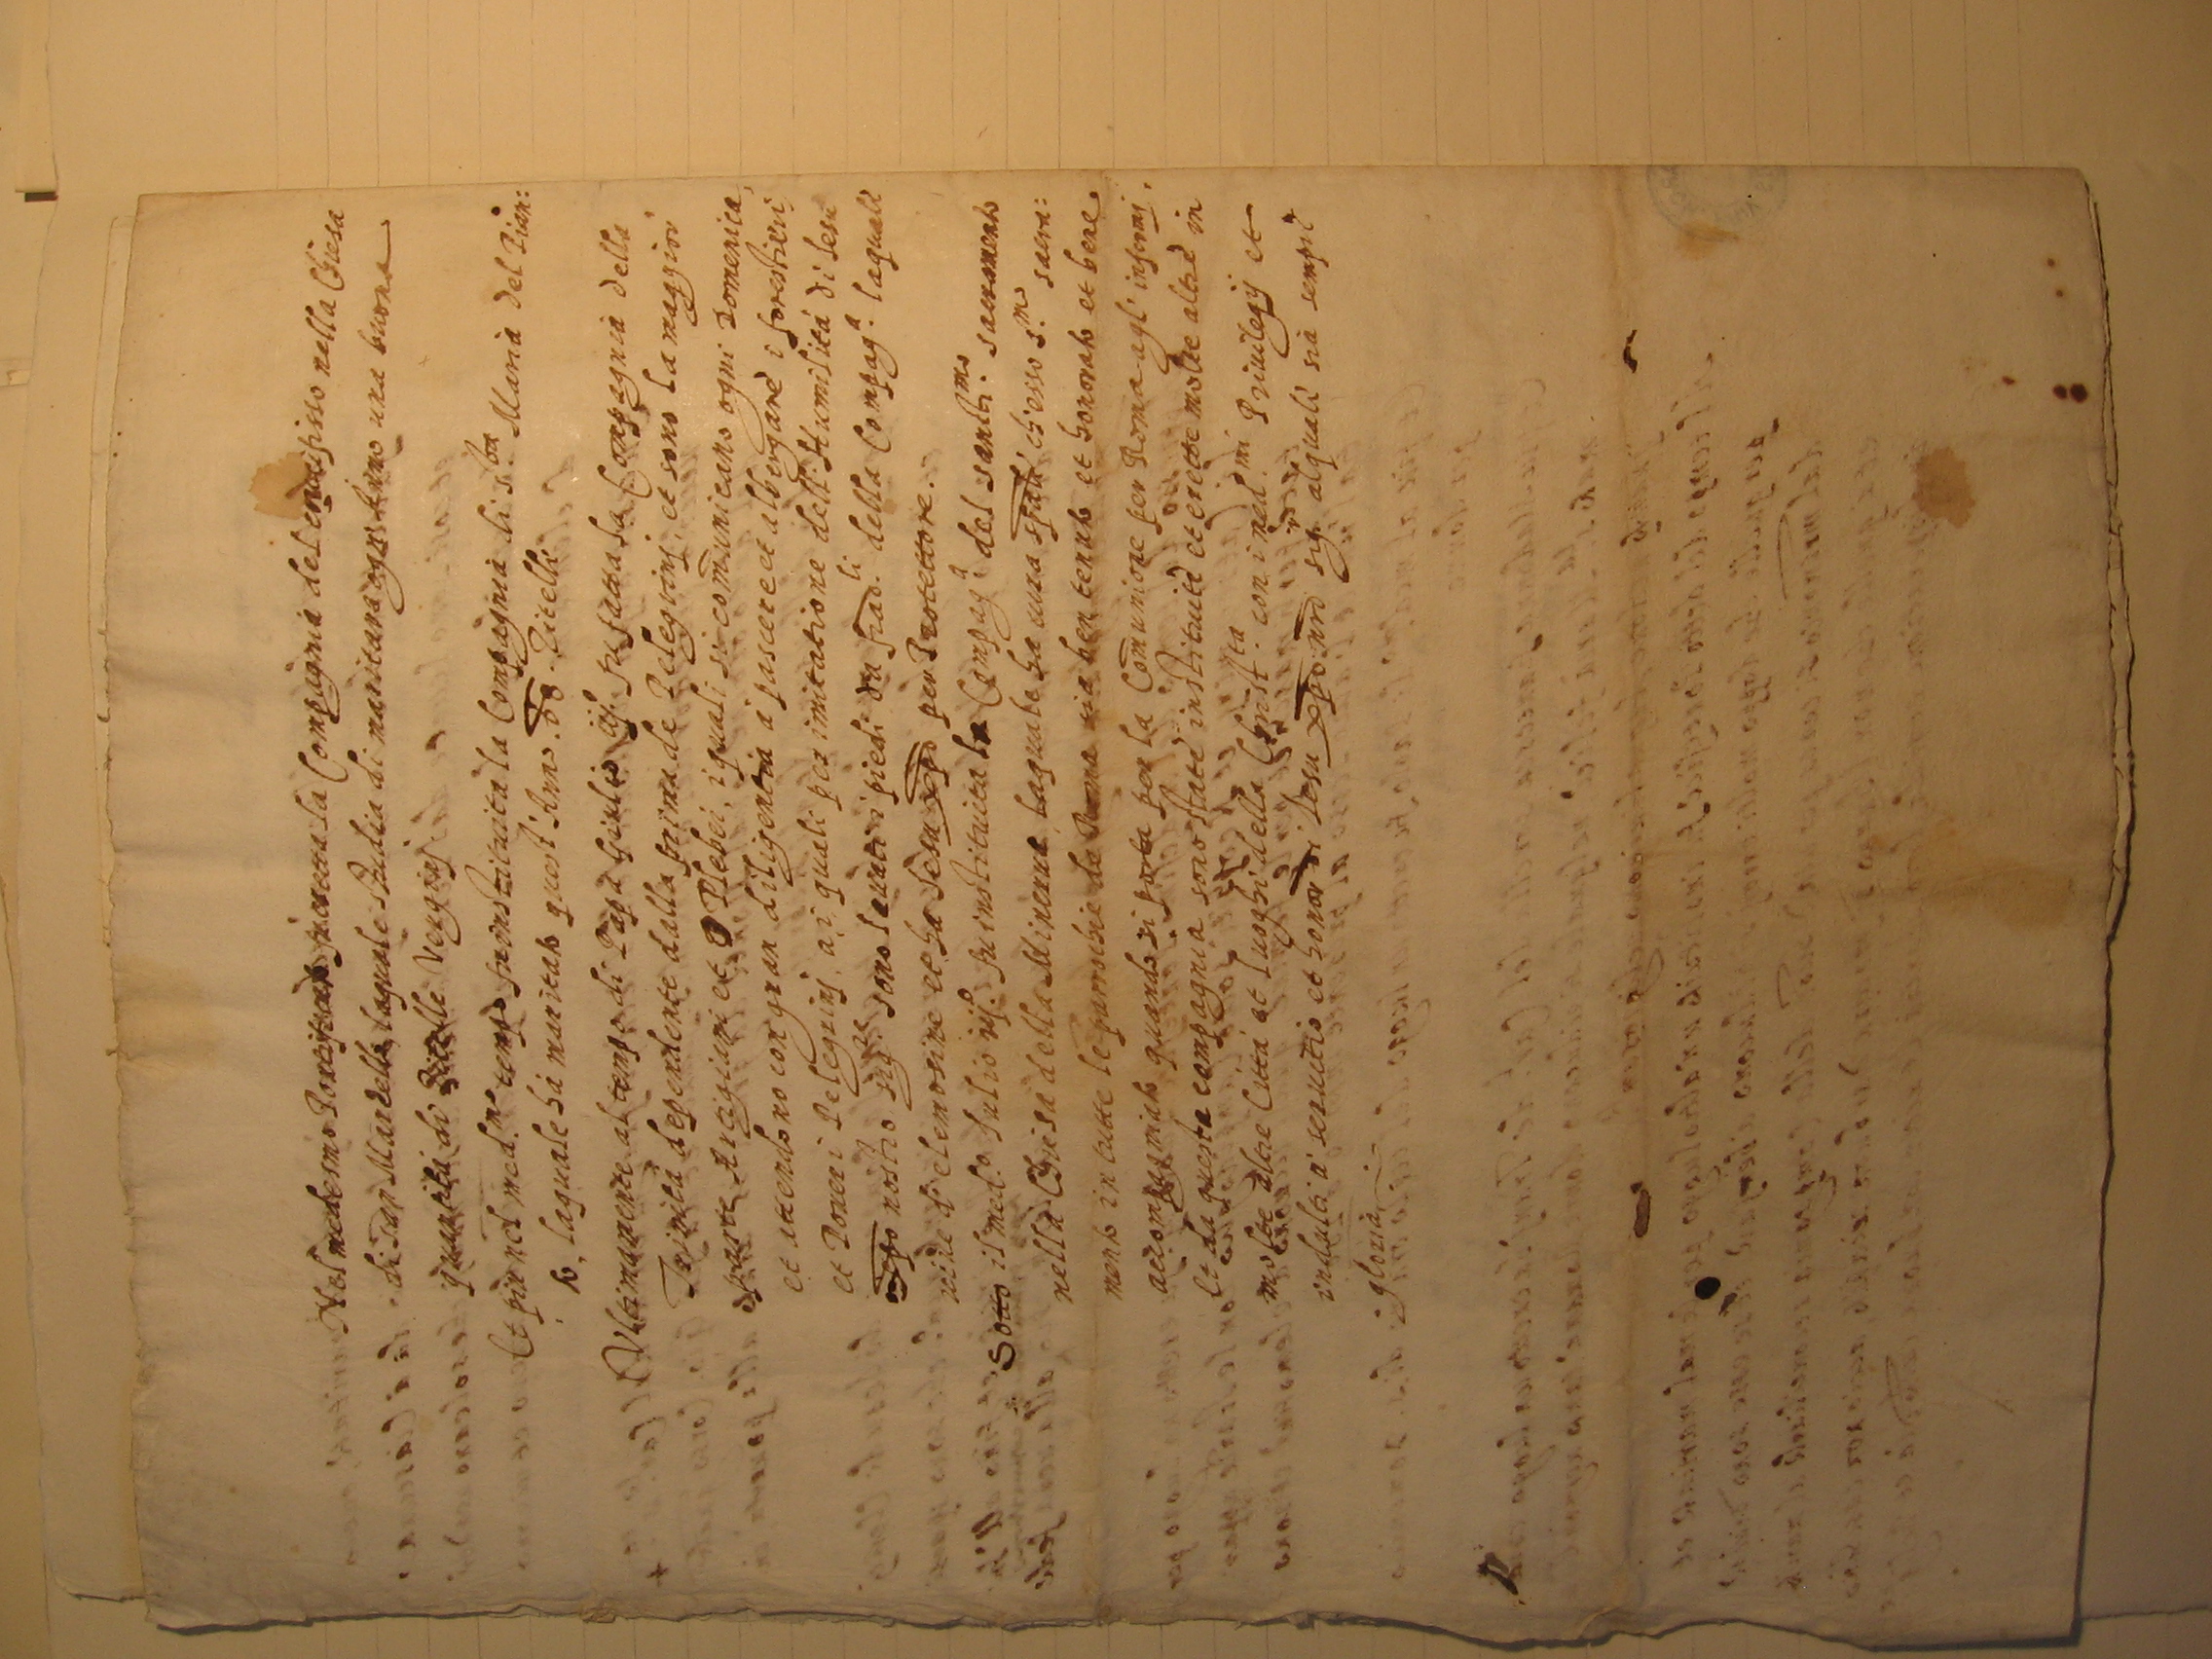 Nel medesmo Pontificato fu eretta la Compagnia del crucifisso nella Chiesa
di San Marcello, laquale studia di maritare ogni Anno una buona
quantità di Zitelle Vergini
Et piu nel med.mo tempo fu instituita la Compagnia di s.ta Maria del Pian:
to, laquale hà maritato quest'Anno. 68. Zitelle
Ultimamente al tempo di Papa Giulio iij. fu fatta la Compagnia della
Trinità dependente dalla prima de Pelegrinj, et sono la maggior
parte Artegiani et Plebei, i quali si comunicano ogni Domenica,
et attendono con gran diligentia à pascere et albergare i forestieri,
et Poveri Pelegrinj, a i quali per imitatione dell'Humilità di Iesu
xpo nostro sig.re sono lavati i piedi da frad.li della Compag.a laquale
vive di elemosine et ha Iesu xpo per Protettore.
Sotto il med.o Julio iij. fu instituita la Compag.a del santis.mo sacramento
nella Chiesa della Minerva laquale ha cura ch'esso s.mo sacra:
mento in tutte le parochie de Roma sia ben tenuto et honorato et bene
accompagniato quando si porta per la Comunione per Roma agl' infermi.
Et da questa compagnia sono state instituite et erette molte altre in
molte altre Città et luoghi della con i med.mi Privilegij et
indulti à servitio et honor di Iesu xpo nro sig.r alquale sia sempre
gloria.